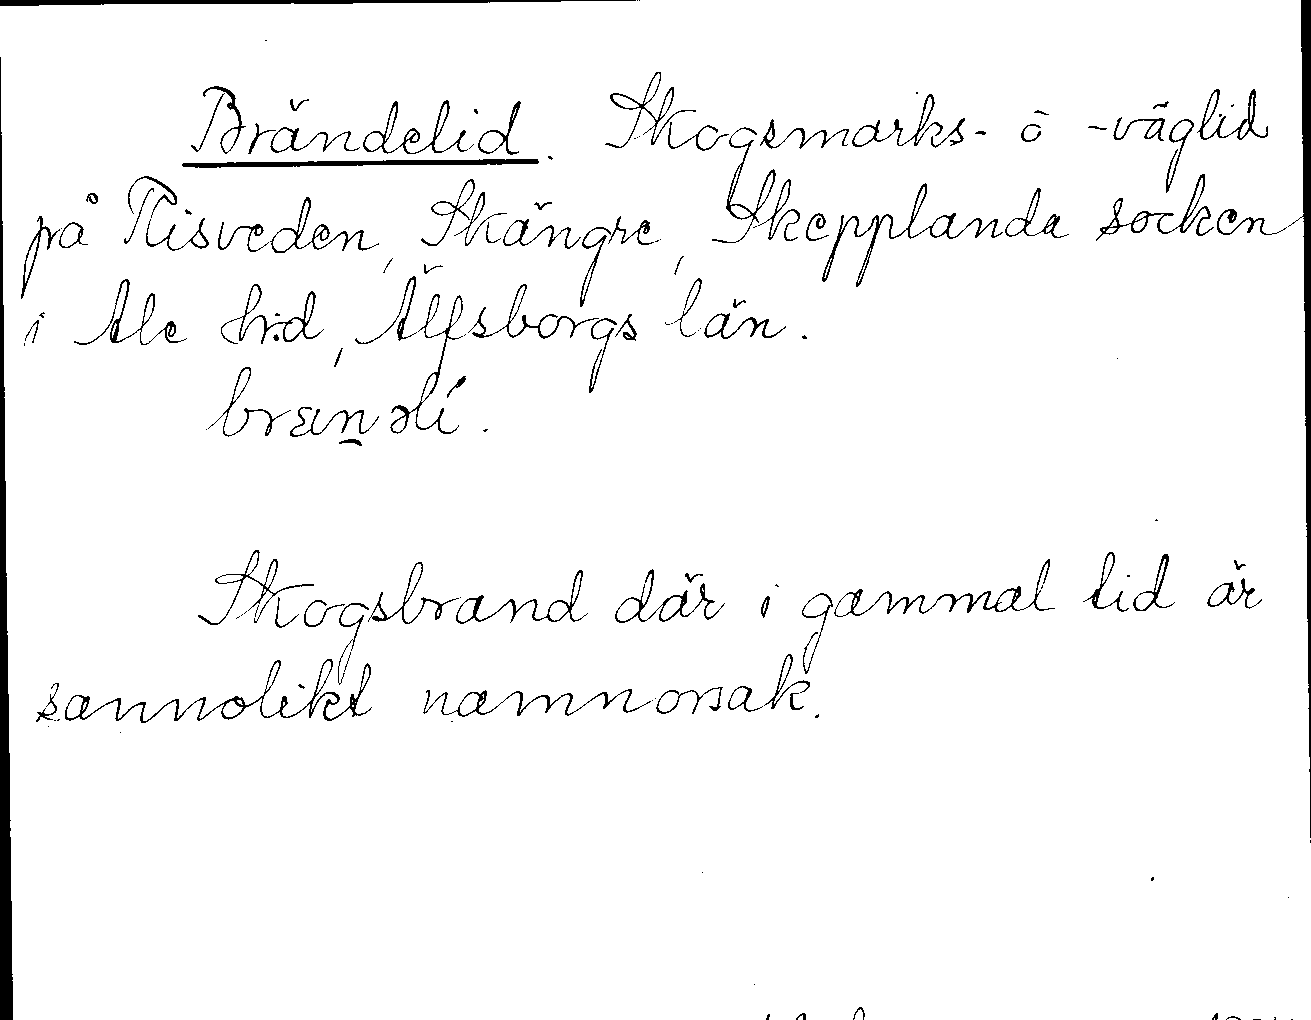 Brändelid. Skogsmarks- o -väglid
på Risveden, Skängre, Skepplanda socken
i Ale h:d, Älfsborgs län.
bræn̲əlí.
Skogsbrand där i gammal tid är
sannolikt namnorsak.